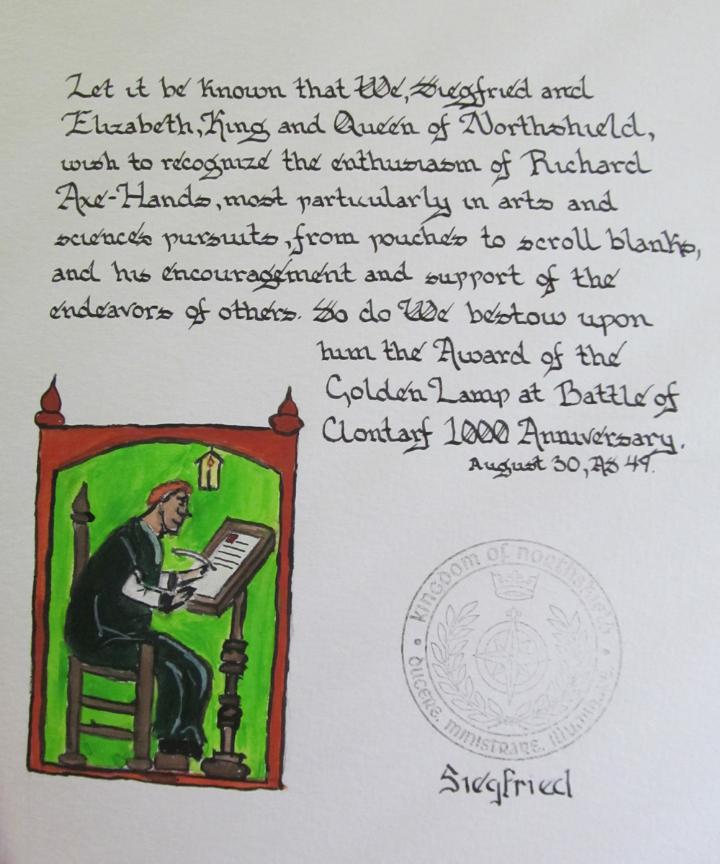 Let it be known that We, Siegfried and
Elizabeth, King and Queen of Northshield,
wish to recognize the enthusiasm of Richard
Axe-Hands, most particularly in arts and
sciences pursuits, from pouches to scroll blanks,
and his encouragement and support of the
endeavors of others. So do We bestow upon
him the Award of the
Golden Lamp at Battle of
Clontarf 1000 Anniversary.
August 30, AS 49.
kingdom of northshield
DUCERE, MINISTRARE,
Siegfried